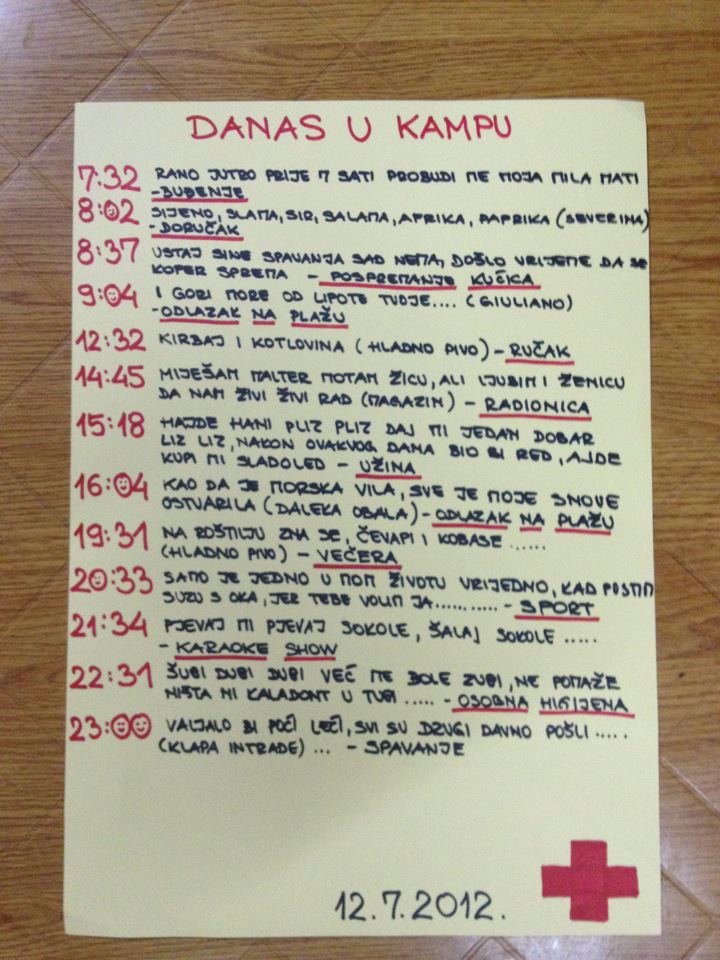 DANAS U KAMPU
7:32 RANO JUTRO PRIJE 7 SATI PROBUDI ME MOJA MILA MATI
-BUĐENJE
8:02 SIJENO, SLAMA, SIR, SALAMA, AFRIKA, PAPRIKA (SEVERINA)
-DORUČAK
8:37 USTAJ SINE SPAVANJA SAD NEMA, DOŠLO VRIJEME DA SE
KOFER SPREMA - POSPREMANJE KUĆICA
9:04 I GORI MORE OD LIPOTE TVOJE.... (GIULIANO)
-ODLAZAK NA PLAŽU
12:32 KIRBAJ I KOTLOVINA (HLADNO PIVO) - RUČAK
14:45 MIJEŠAM MALTER MOTAM ŽICU, ALI LJUBIM I ŽENICU
DA NAM ŽIVI ŽIVI RAD (MAGAZIN) - RADIONICA
15:18 HAJDE HANI PLIZ PLIZ DAJ MI JEDAN DOBAR
LIZ LIZ, NAKON OVAKVOG DANA BIO BI RED, AJDE
KUPI MI SLADOLED - UŽINA
16:04 KAO DA JE MORSKA VILA, SVE JE MOJE SNOVE
OSTVARILA (DALEKA OBALA) - ODLAZAK NA PLAŽU
19:31 NA ROŠTILJU ZNA SE, ČEVAPI I KOBASE ......
(HLADNO PIVO) - VEČERA
20:33 SAMO JE JEDNO U MOM ŽIVOTU VRIJEDNO, KAD PUSTIM
SUZU S OKA, JER TEBE VOLIM JA........... - SPORT
21:34 PJEVAJ MI PJEVAJ SOKOLE, ŠALAJ SOKOLE .....
- KARAOKE SHOW
22:31 ŠUBI DUBI DUBI VEĆ ME BOLE ZUBI, NE POMAŽE
NIŠTA NI KALADONT U TUBI ..... - OSOBNA HIGIJENA
23:00 VALJALO BI POĆI LEĆI, SVI SU DRUGI DAVNO POŠLI .....
(KLAPA INTRADE) ... - SPAVANJE
12.7.2012.